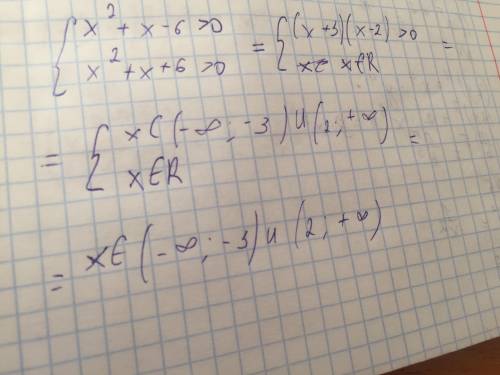 { x² + x - 6 > 0 = { (x + 3)(x - 2) > 0 =
x² + x + 6 > 0 x ∈ R
= { x ∈ (-∞; -3) ∪ (2; +∞) =
x ∈ R
= x ∈ (-∞; -3) ∪ (2; +∞)